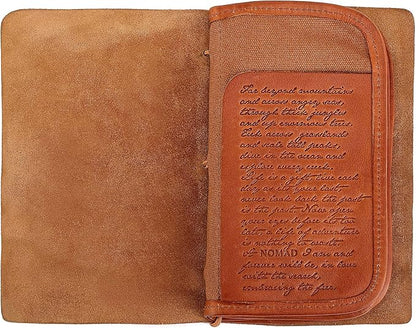 Far beyond mountains
and across angry seas,
through thick jungles
and up enormous trees.
Trek across grasslands
and scale tall peaks,
dive in the ocean and
explore every creek.
Life is a gift live each
day as its your last
never look back the past
is the past. Now open
your eyes before its too
late a life of adventure
is nothing to waste.
A NOMAD I am and
forever will be, in love
with the search,
embracing the free.